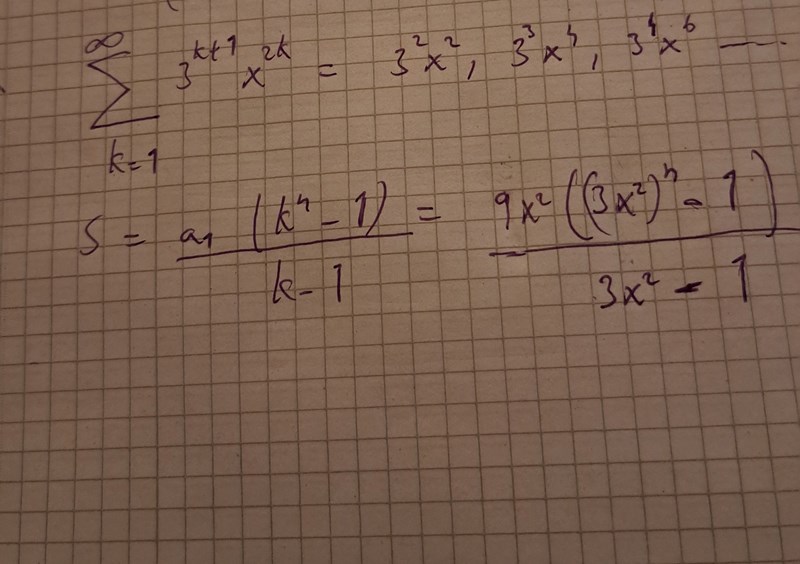 ∞
∑ 3^{k+1} x^{2k} = 3^2x^2, 3^3x^4, 3^4x^6 ——
k=1
S = a_1 (k^n - 1) / (k - 1) = 9x^2 ((3x^2)^n - 1) / (3x^2 - 1)